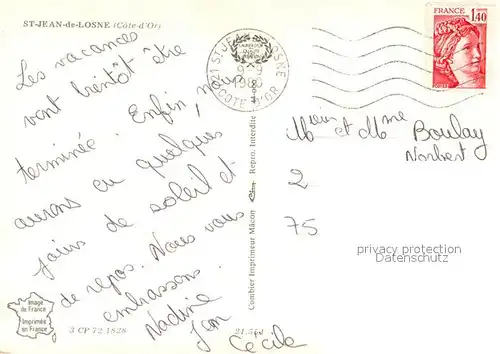 ST-JEAN-de-LOSNE (Côte-d'Or)
Les vacances
vont bientôt être
terminée. Enfin, nous
aurons eu quelques
jours de soleil et
de repos. Nous vous
embrassons.
Nadine
Jan
Cécile
21 ST-JE LOSNE
9-9
1980
COTE D'OR
FRANCE
1,40
POSTES
Mieur et Mme Boulay
Norbert
2
75
Combier Imprimeur Mâcon Cim Repro. Interdite
Image
de France
Imprimée
en France
3 CP 72 1828
privacy protection
Datenschutz